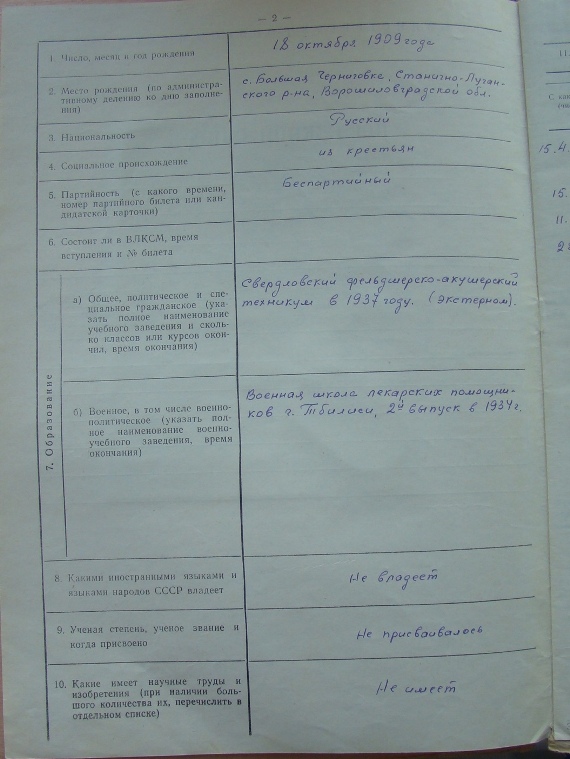 — 2 —
1. Число, месяц и год рождения
18 октября 1909 года
2. Место рождения (по администра-
тивному делению ко дню заполне-
ния)
с. Большая Черниговка, Станично-Луган-
ского р-на, Ворошиловградской обл.
3. Национальность
Русский
4. Социальное происхождение
из крестьян
5. Партийность (с какого времени,
номер партийного билета или кан-
дидатской карточки)
Беспартийный
6. Состоит ли в ВЛКСМ, время
вступления и № билета
7. Образование
а) Общее, политическое и спе-
циальное гражданское (ука-
зать полное наименование
учебного заведения и сколь-
ко классов или курсов окон-
чил, время окончания)
Свердловский фельдшерско-акушерский
техникум в 1937 году. (Экстерном).
б) Военное, в том числе военно-
политическое (указать пол-
ное наименование военно-
учебного заведения, время
окончания)
Военная школа лекарских помощни-
ков г. Тбилиси, 2й выпуск в 1934 г.
8. Какими иностранными языками и
языками народов СССР владеет
Не владеет
9. Ученая степень, ученое звание и
когда присвоено
Не присваивалось
10. Какие имеет научные труды и
изобретения (при наличии боль-
шого количества их, перечислить в
отдельном списке)
Не имеет
11.
15.4.
15.
11.